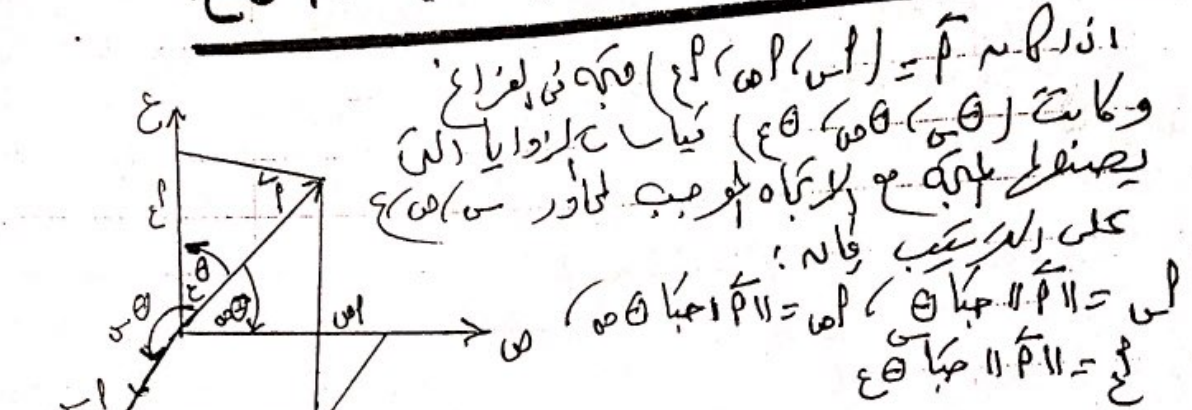 اذا كان أ = (أس، أص، أع) متجه فى الفراغ
وكانت (θس، θص، θع) قياسات الزوايا التى
يصنعها المتجه مع الاتجاه الموجب لمحاور س، ص، ع
على الترتيب فإنه:
أس = ||أ|| حتا θس، أص = ||أ|| حتا θص،
أع = ||أ|| حتا θع
ع
أع
أ
θع
θص
θس
أص
ص
أس